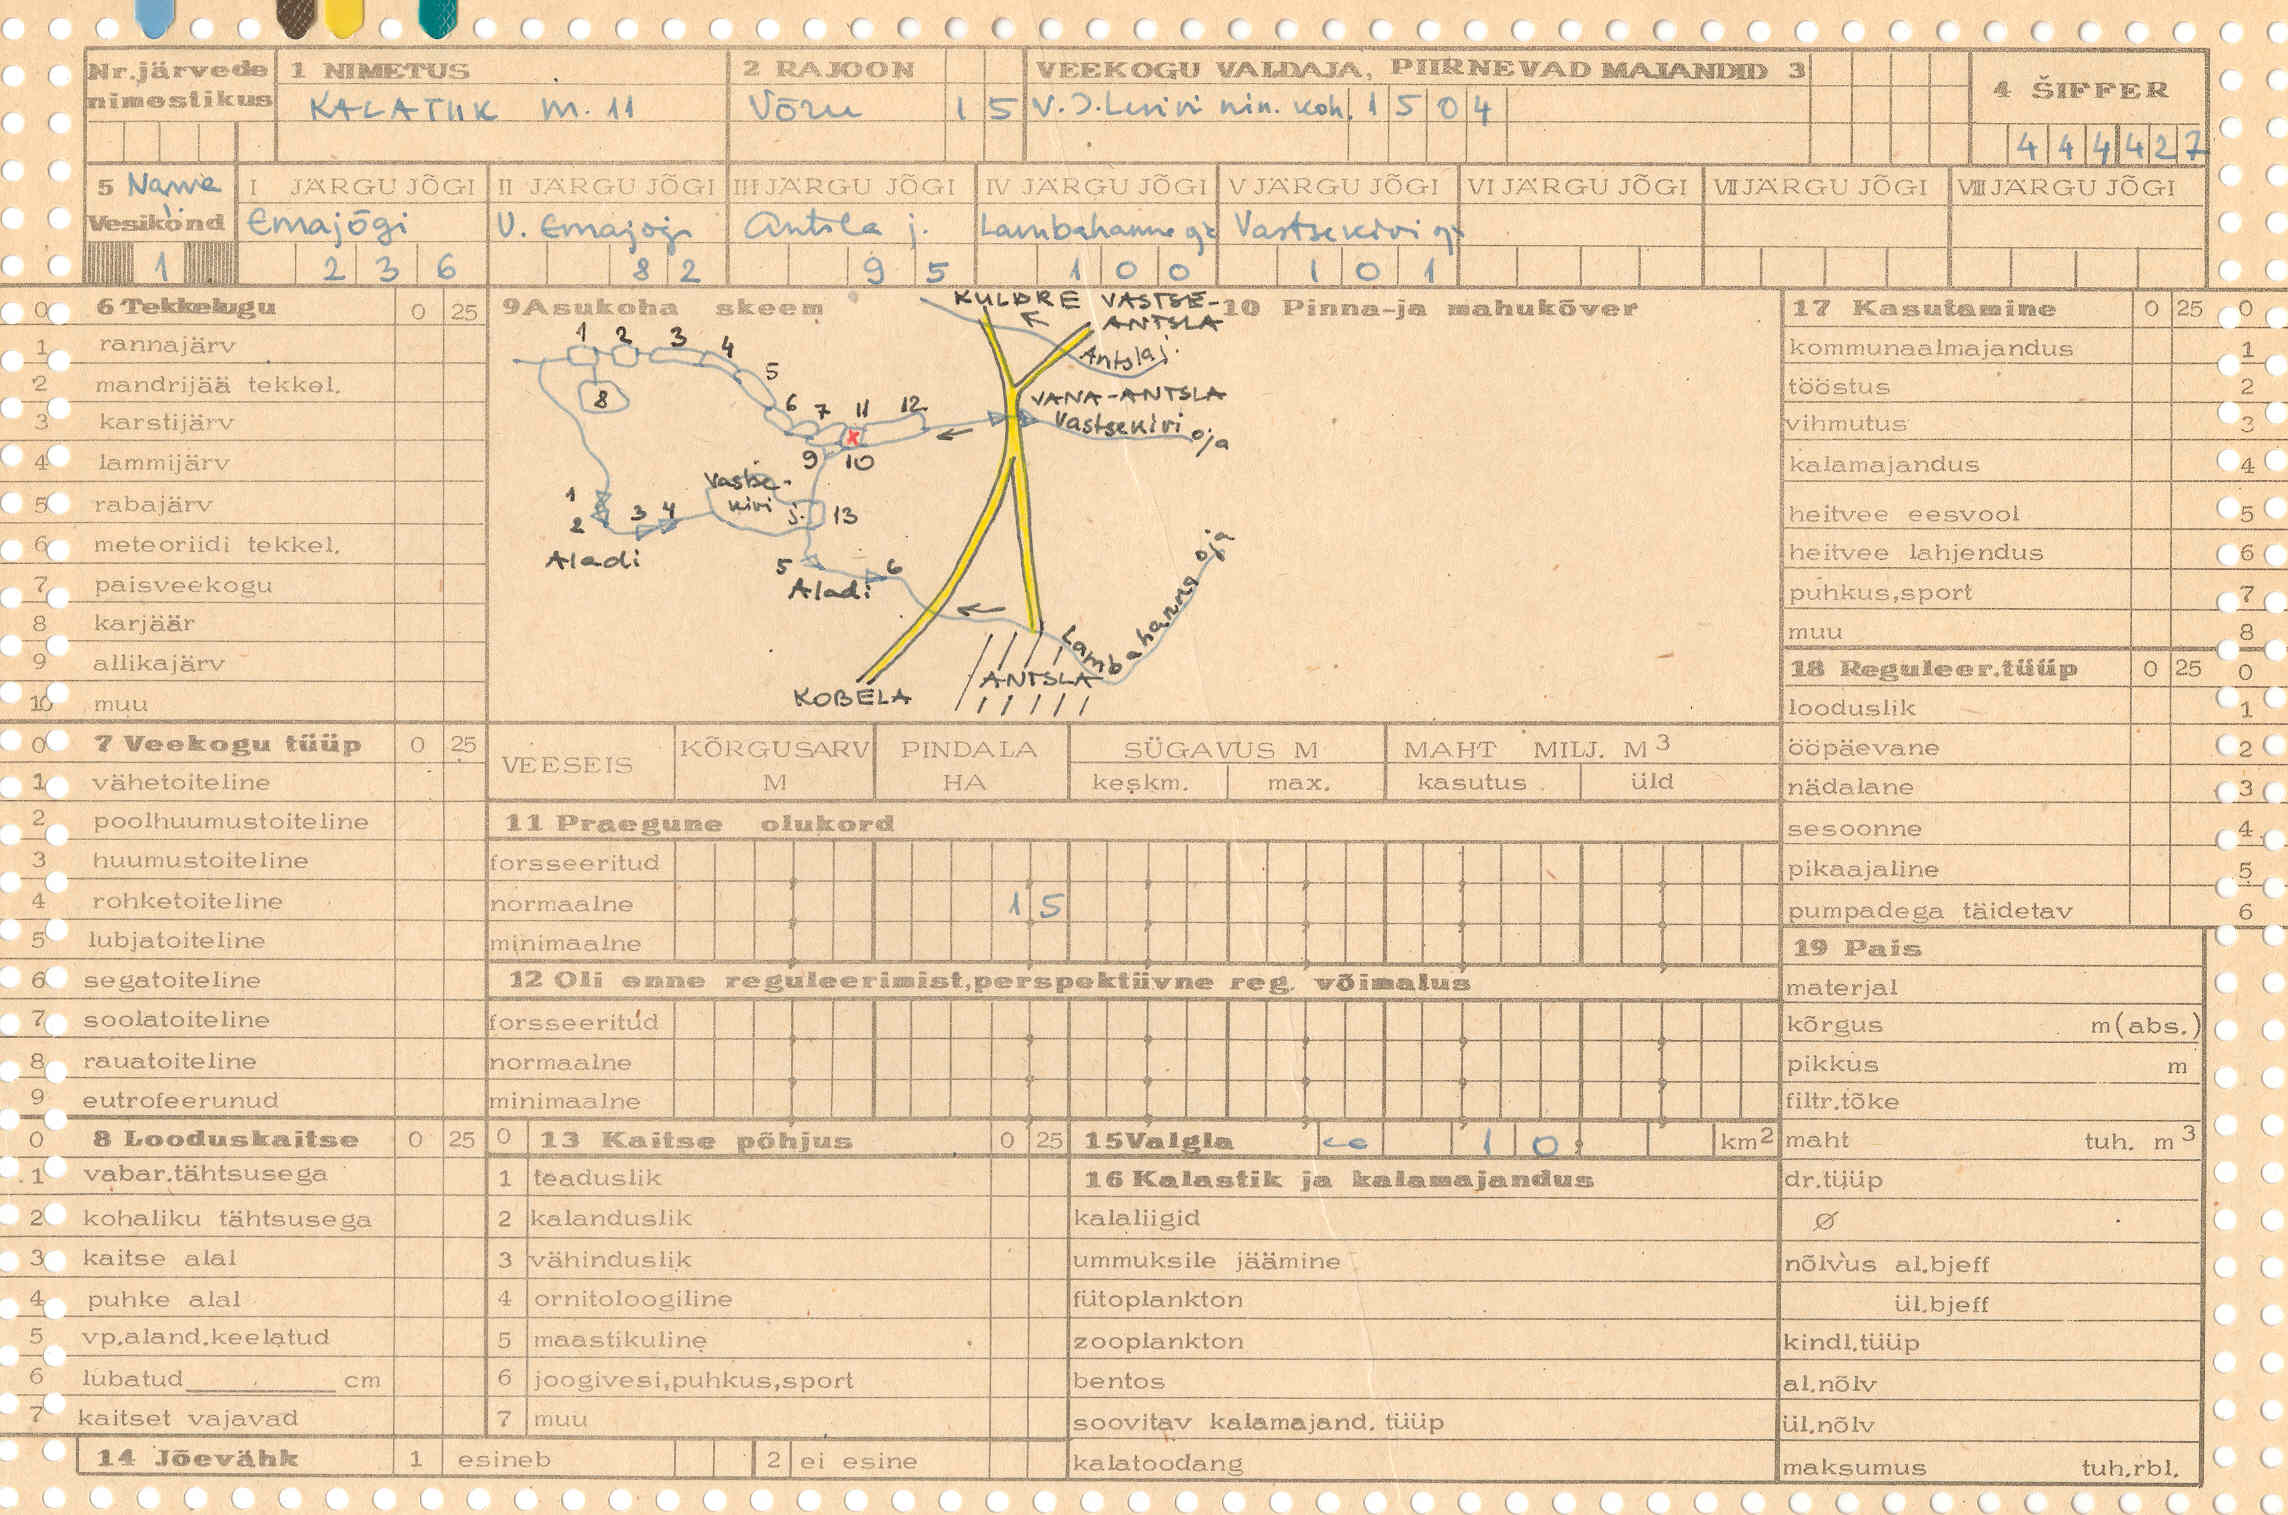 Nr.järvede nimestikus
1 NIMETUS
KALATIIK M. 11
2 RAJOON
Võru 1 5
VEEKOGU VALDAJA, PIIRNEVAD MAJANDID 3
V. I. Lenini nim. koh. 1 5 0 4
4 ŠIFFER
4 4 4 4 2 7
5 Narva Vesikond
1
I JÄRGU JÕGI
Emajõgi
2 3 6
II JÄRGU JÕGI
V. Emajõgi
8 2
III JÄRGU JÕGI
Antsla j.
9 5
IV JÄRGU JÕGI
Lambahanna oja
1 0 0
V JÄRGU JÕGI
Vastsekivi oja
1 0 1
VI JÄRGU JÕGI
VII JÄRGU JÕGI
VIII JÄRGU JÕGI
0 6 Tekkelugu 0 25
1 rannajärv
2 mandrijää tekkel.
3 karstijärv
4 lammijärv
5 rabajärv
6 meteoriidi tekkel.
7 paisveekogu
8 karjäär
9 allikajärv
10 muu
0 7 Veekogu tüüp 0 25
1 vähetoiteline
2 poolhuumustoiteline
3 huumustoiteline
4 rohketoiteline
5 lubjatoiteline
6 segatoiteline
7 soolatoiteline
8 rauatoiteline
9 eutrofeerunud
0 8 Looduskaitse 0 25
1 vabar.tähtsusega
2 kohaliku tähtsusega
3 kaitse alal
4 puhke alal
5 vp.aland.keelatud
6 lubatud cm
7 kaitset vajavad
14 Jõevähk 1 esineb 2 ei esine
9 Asukoha skeem
KULDRE VASTSE-
ANTSLA
Antsla j.
1 2 3 4 5 6 7 11 12
8
x
9 10
VANA-ANTSLA
Vastsekivi oja
Vastse-
kivi j.
13
1 2 3 4
Aladi
5 6
Aladi
Lambahanna oja
ANTSLA
KOBELA
10 Pinna-ja mahukõver
VEESEIS
KÕRGUSARV M
PINDALA HA
SÜGAVUS M
keskm. max.
MAHT MILJ. M3
kasutus üld
11 Praegune olukord
forsseeritud
normaalne 1 5
minimaalne
12 Oli enne reguleerimist,perspektiivne reg. võimalus
forsseeritud
normaalne
minimaalne
0 13 Kaitse põhjus 0 25
1 teaduslik
2 kalanduslik
3 vähinduslik
4 ornitoloogiline
5 maastikuline
6 joogivesi,puhkus,sport
7 muu
15 Valgla 1 0 km2
16 Kalastik ja kalamajandus
kalaliigid
ummuksile jäämine
fütoplankton
zooplankton
bentos
soovitav kalamajand. tüüp
kalatoodang
17 Kasutamine 0 25 0
kommunaalmajandus 1
tööstus 2
vihmutus 3
kalamajandus 4
heitvee eesvool 5
heitvee lahjendus 6
puhkus,sport 7
muu 8
18 Reguleer.tüüp 0 25 0
looduslik 1
ööpäevane 2
nädalane 3
sesoonne 4
pikaajaline 5
pumpadega täidetav 6
19 Pais
materjal
kõrgus m(abs.)
pikkus m
filtr.tõke
maht tuh. m3
dr.tüüp
Ø
nõlvus al.bjeff
ül.bjeff
kindl.tüüp
al.nõlv
ül.nõlv
maksumus tuh.rbl.